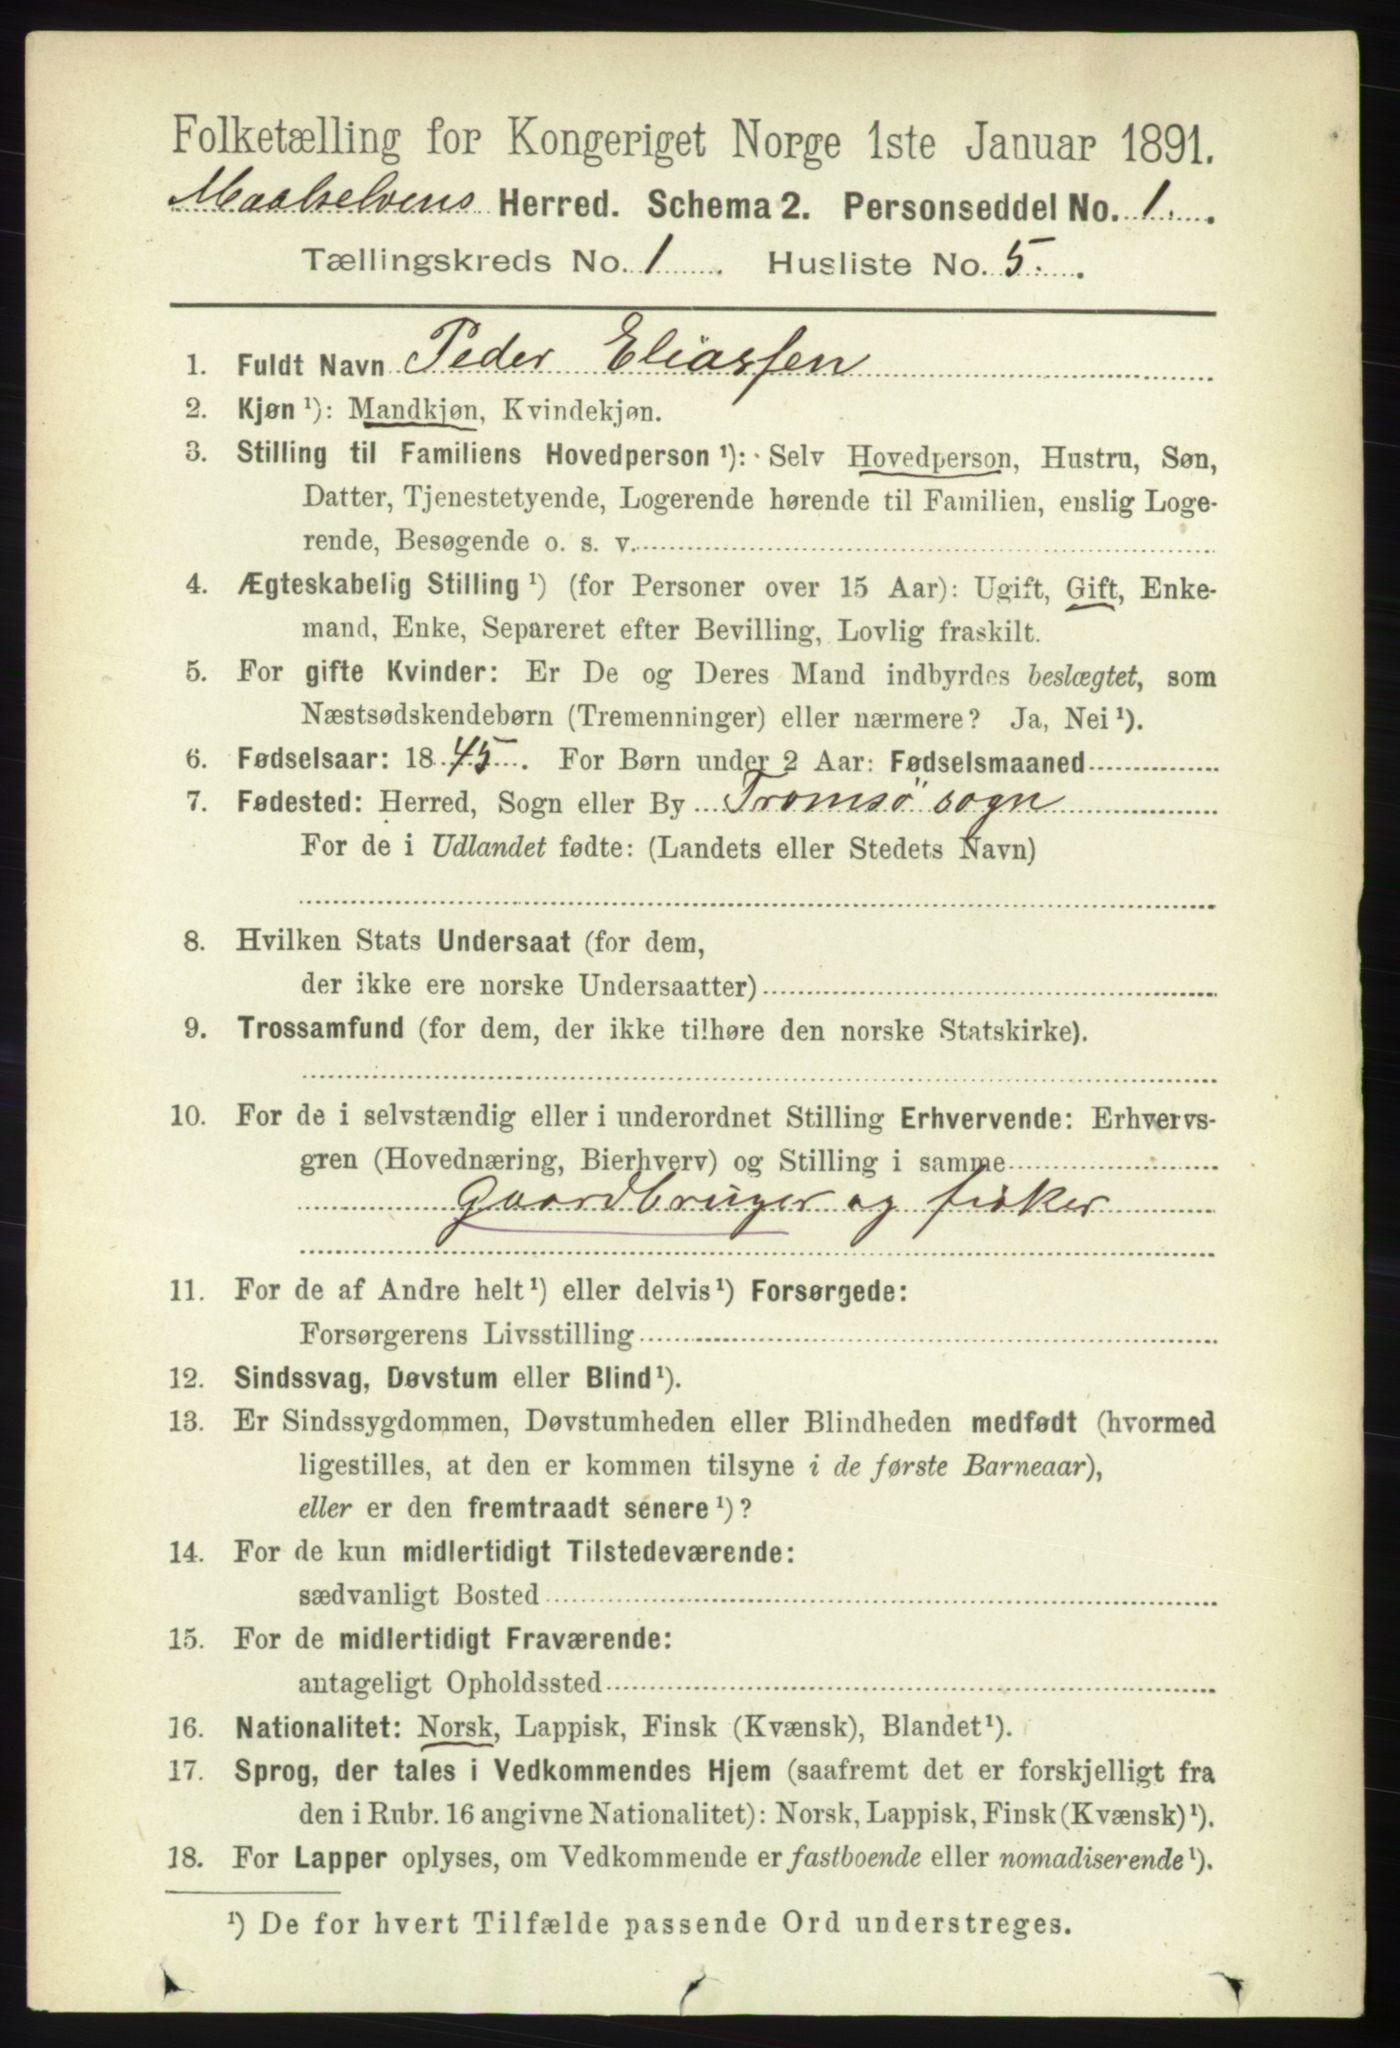 Folketælling for Kongeriget Norge 1ste Januar 1891.
Maalselvens Herred. Schema 2. Personseddel No. 1.
Tællingskreds No. 1. Husliste No. 5.
1. Fuldt Navn Peder Eliassen
2. Kjøn ¹): Mandkjøn, Kvindekjøn.
3. Stilling til Familiens Hovedperson ¹): Selv Hovedperson, Hustru, Søn,
Datter, Tjenestetyende, Logerende hørende til Familien, enslig Loge-
rende, Besøgende o. s. v.
4. Ægteskabelig Stilling ¹) (for Personer over 15 Aar): Ugift, Gift, Enke-
mand, Enke, Separeret efter Bevilling, Lovlig fraskilt.
5. For gifte Kvinder: Er De og Deres Mand indbyrdes beslægtet, som
Næstsødskendebørn (Tremenninger) eller nærmere? Ja, Nei ¹).
6. Fødselsaar: 1845. For Børn under 2 Aar: Fødselsmaaned
7. Fødested: Herred, Sogn eller By Tromsö sogn
For de i Udlandet fødte: (Landets eller Stedets Navn)
8. Hvilken Stats Undersaat (for dem,
der ikke ere norske Undersaatter)
9. Trossamfund (for dem, der ikke tilhøre den norske Statskirke).
10. For de i selvstændig eller i underordnet Stilling Erhvervende: Erhvervs-
gren (Hovednæring, Bierhverv) og Stilling i samme
Gaardbruger og fisker
11. For de af Andre helt ¹) eller delvis ¹) Forsørgede:
Forsørgerens Livsstilling
12. Sindssvag, Døvstum eller Blind ¹).
13. Er Sindssygdommen, Døvstumheden eller Blindheden medfødt (hvormed
ligestilles, at den er kommen tilsyne i de første Barneaar),
eller er den fremtraadt senere ¹)?
14. For de kun midlertidigt Tilstedeværende:
sædvanligt Bosted
15. For de midlertidigt Fraværende:
antageligt Opholdssted
16. Nationalitet: Norsk, Lappisk, Finsk (Kvænsk), Blandet ¹).
17. Sprog, der tales i Vedkommendes Hjem (saafremt det er forskjelligt fra
den i Rubr. 16 angivne Nationalitet): Norsk, Lappisk, Finsk (Kvænsk) ¹).
18. For Lapper oplyses, om Vedkommende er fastboende eller nomadiserende ¹).
¹) De for hvert Tilfælde passende Ord understreges.